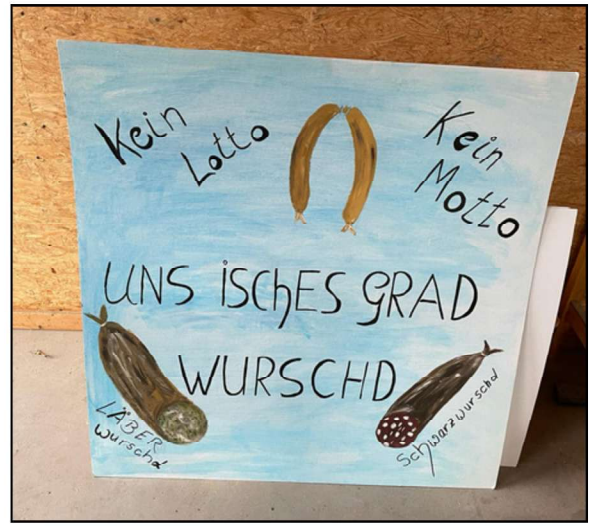 Kein
Lotto
Kein
Motto
UNS ISCHES GRAD
WURSCHD
LÄBER
wurschd
Schwarzwurschd